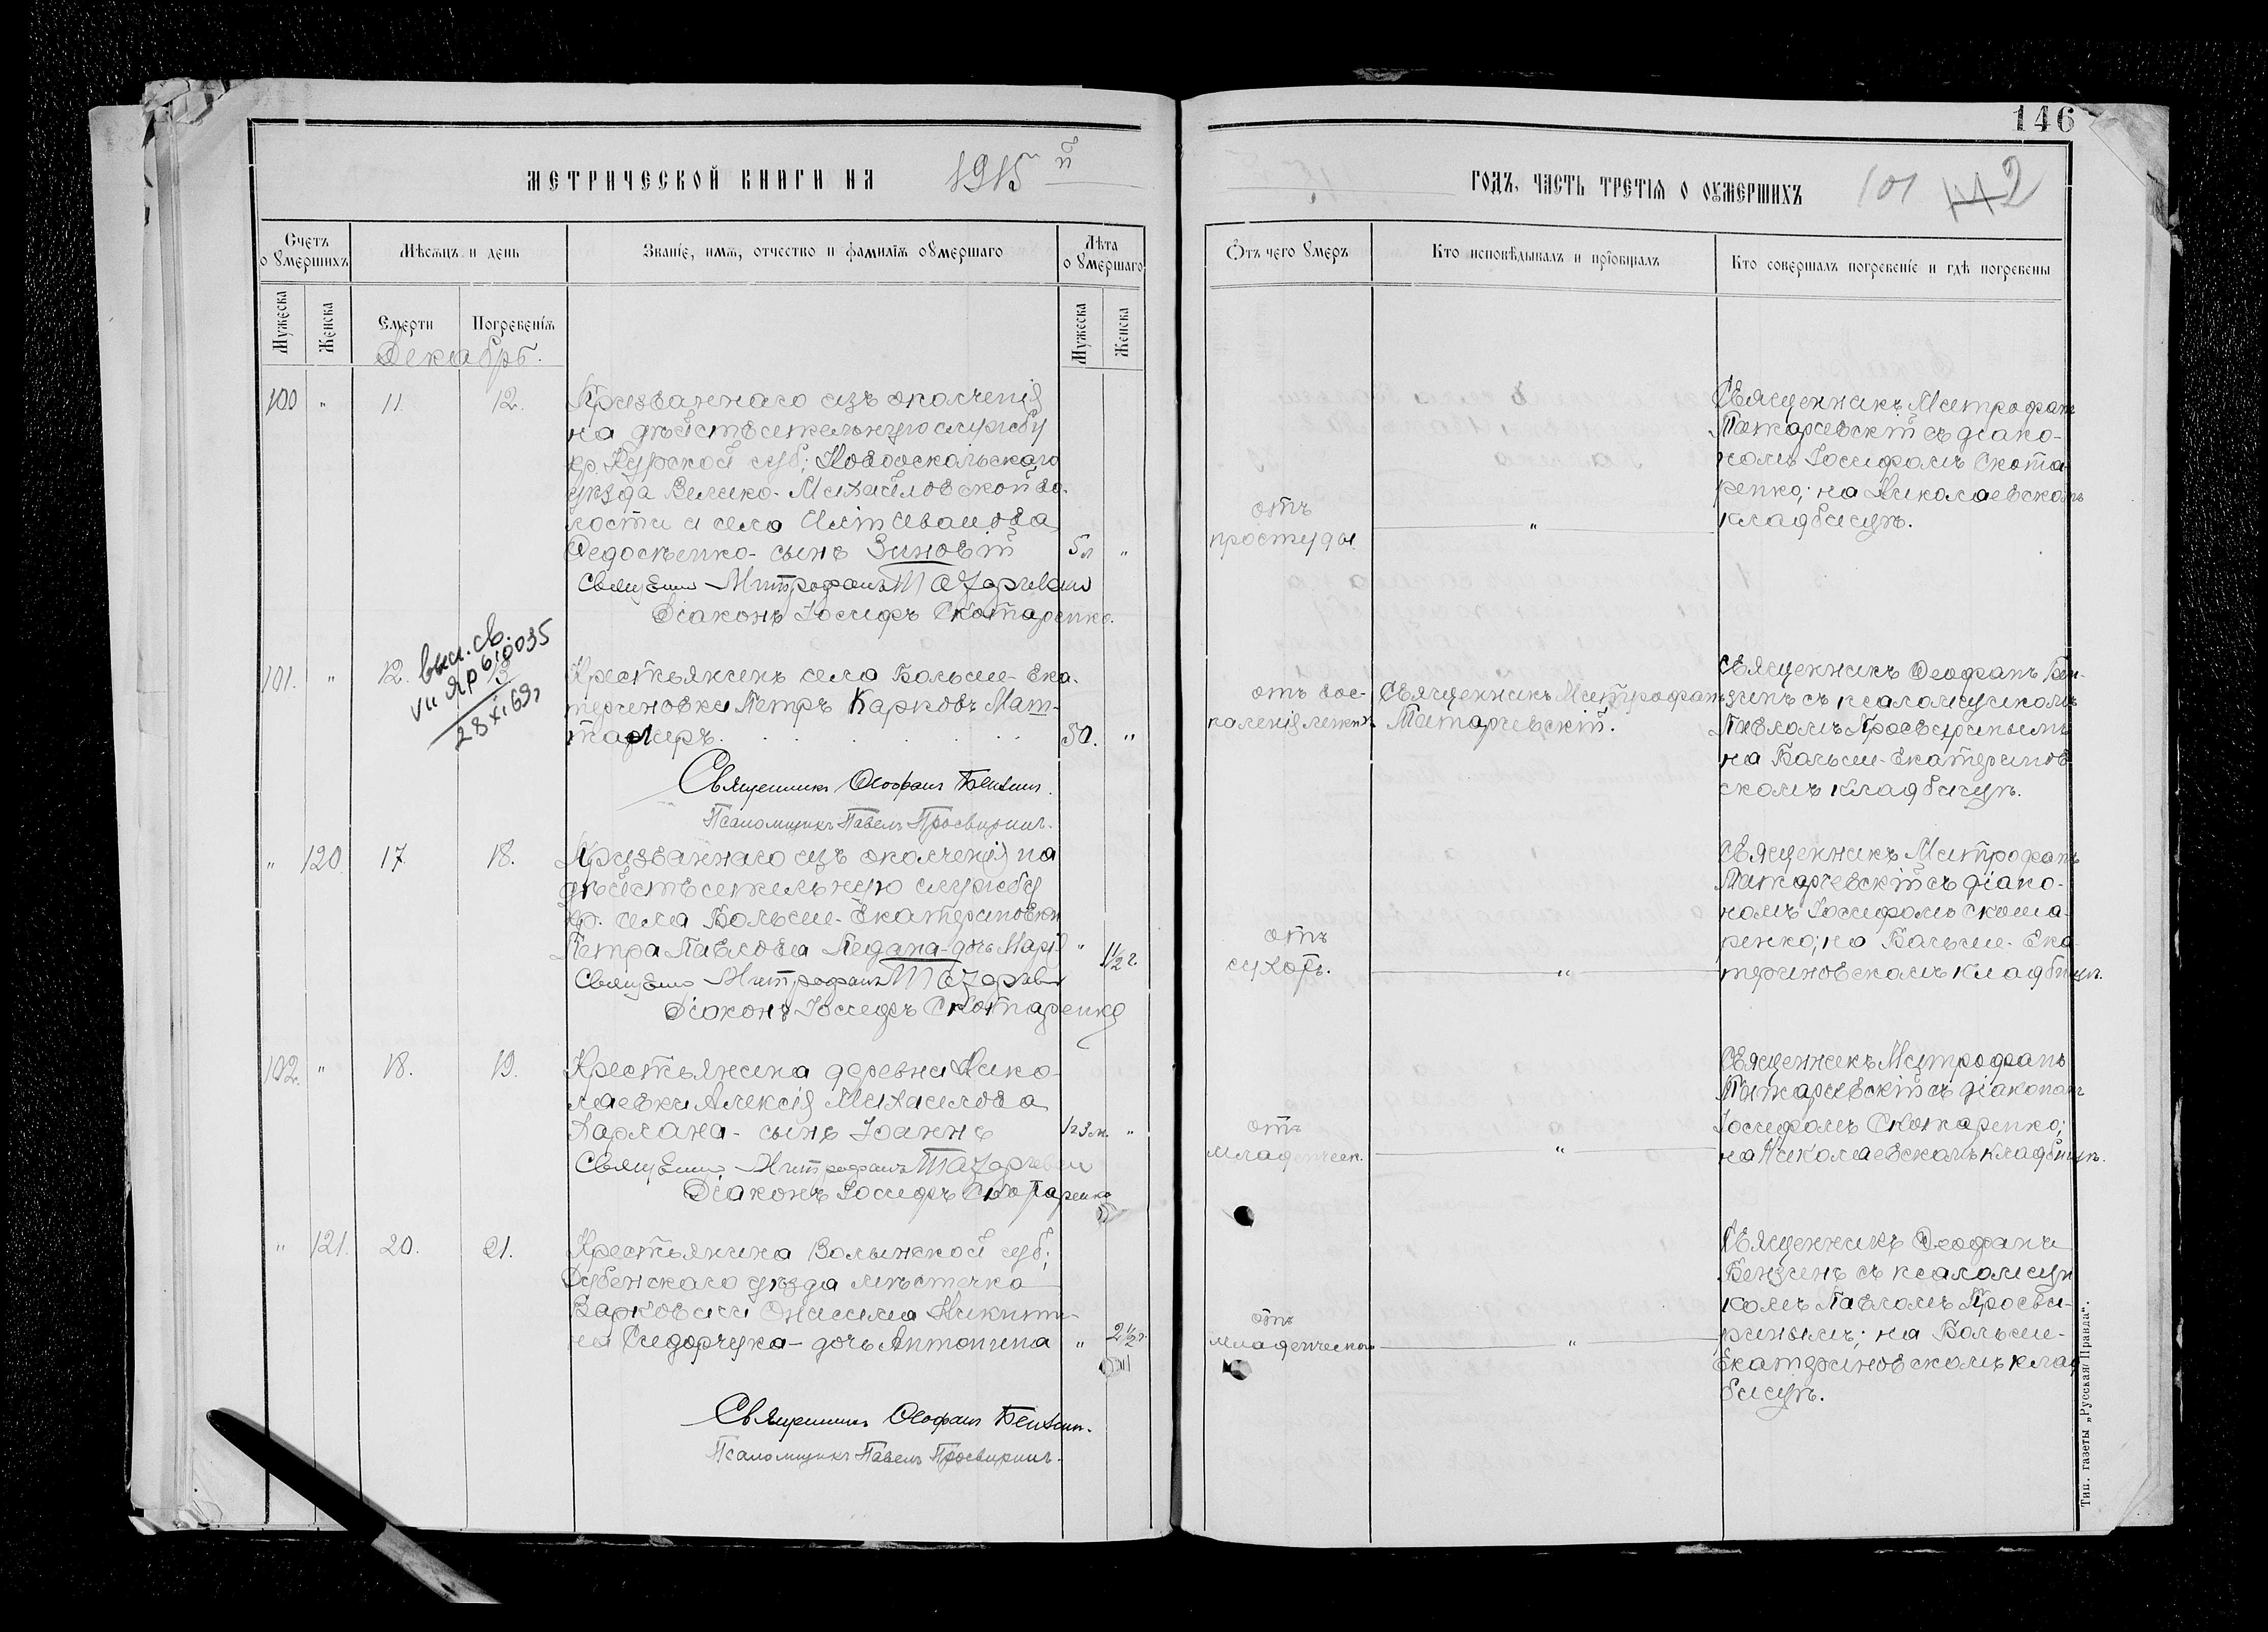 146
МЕТРИЧЕСКОЙ КНИГИ НА 1915 й
ГОДЪ, ЧАСТЬ ТРЕТІЯ О ОУМЕРШИХЪ 101
Счетъ о умершихъ
Мѣсяцъ и день
Званіе, имя, отчество и фамилія оумершаго
Лѣта оумершаго
Отъ чего умеръ
Кто исповѣдывалъ и пріобщалъ
Кто совершалъ погребеніе и гдѣ погребены
Мужеска
Женска
Смерти
Погребенія
Мужеска
Женска
Декабрь.
100 " 11. 12.
Призваннаго изъ ополченія
на дѣйствительную службу
кр. Курской губ; Новооскольскаго
уѣзда Велико-Михайловской во-
лости и села
Федосѣенко- сынъ Зиновій 5 л "
Митрофанъ
Діаконъ Іосифъ Скотаренко.
отъ
простуды.
"
Священникъ Митрофанъ
съ діако-
номъ Іосифомъ Скота-
ренко; на Николаевскомъ
кладбищѣ.
вып. св.
28 XI 69
101. " 12. 13
Крестьянинъ села Больше-Ека-
териновки Петръ Карповъ
50. "
Священникъ Феофанъ Бензинъ.
Псаломщикъ Павелъ Просвиринъ.
отъ вос-
паленія легкихъ
Священникъ Митрофанъ
Священникъ Феофанъ Бен-
зинъ съ псаломщикомъ
Павломъ Просвиринымъ
на Больше-Екатеринов
скомъ кладбищѣ.
" 120 17. 18.
Призваннаго изъ ополченія на
дѣйствительную службу
кр. села Больше-Екатериновки
Петра Павлова Педана-дочь Марія " 1½ г.
Митрофанъ
Діаконъ Іосифъ Скотаренко
отъ
"
Священникъ Митрофанъ
съ діако-
номъ Іосифомъ Скота-
ренко; на Больше-Ека-
териновскомъ кладбищѣ.
102. " 18. 19.
Крестьянина деревни Нико-
лаевки Алексія Михаилова
сынъ Іоаннъ "
Митрофанъ
Діаконъ Іосифъ Скотаренко
отъ
младенческ.
"
Священникъ Митрофанъ
съ діакономъ
Іосифомъ Скотаренко;
на Николаевскомъ кладбищѣ.
" 121. 20. 21.
Крестьянина Волынской губ;
Дубенскаго уѣзда мѣстечка
Варковичи Онисима Никити-
на Сидорчука- дочь Антонина " 2½ г.
Священникъ Феофанъ Бензинъ.
Псаломщикъ Павелъ Просвиринъ.
отъ
младенческой
"
Священникъ Феофанъ
Бензинъ съ псаломщи
комъ Павломъ Просви-
ринымъ; на Больше-
Екатериновскомъ клад
бищѣ.
Тип. газеты „Русская Правда".